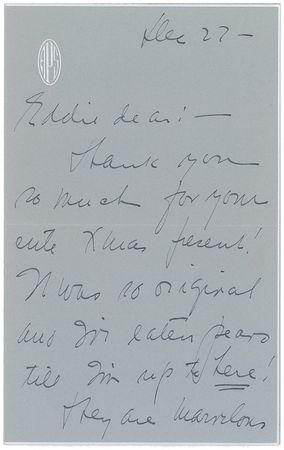 Dec 27 —
Eddie dear: —
Thank you
so much for your
cute Xmas present!
It was so original
and I've eaten pears
till I'm up to here!
They are marvelous